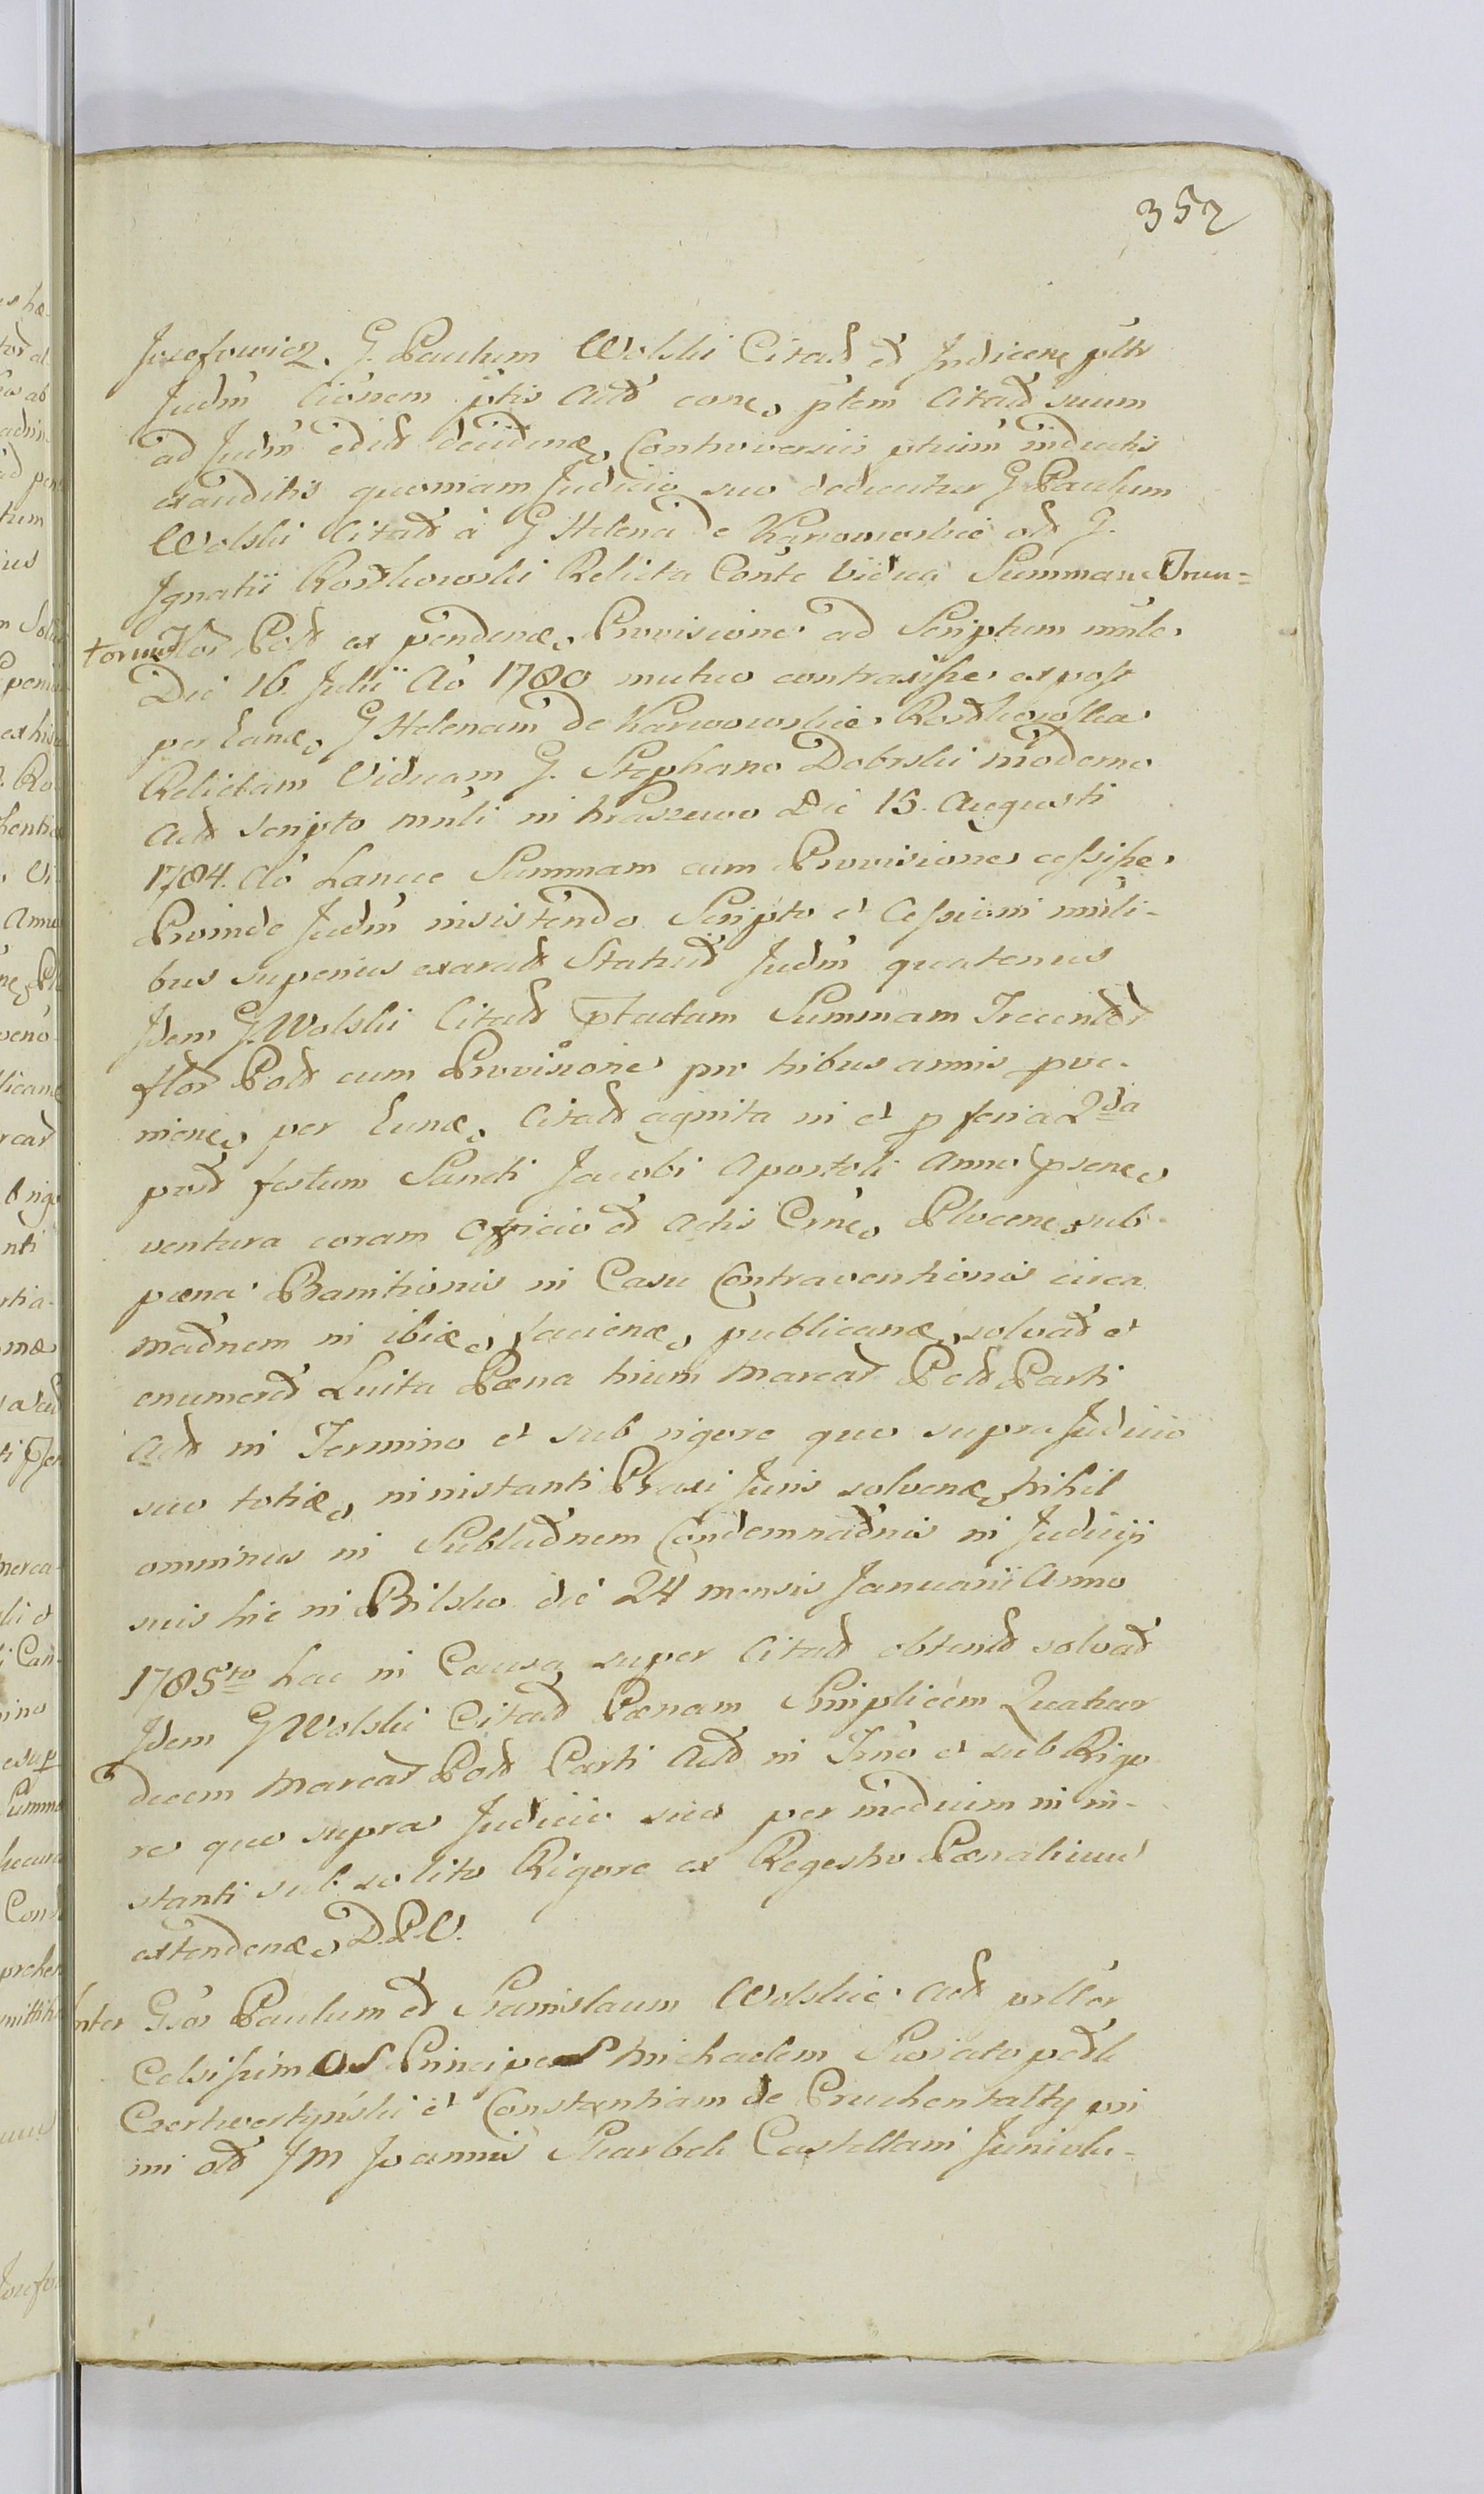 352
Jozefowicz. G. Paulum Wolski Citatt et Indicen, pttr
Judm̃ cionem ptis Actt conc, ptem Citatt suum
ad Judm̃ edidt decidenæ, Controversiis ptium inductis
exauditis quoniam Judicio suo deducitur G Paulum
Wolski Citatt à G Helena de Karwowskie olt G.
Ignatii Rostkowski Relicta Conte Vidua Summam Trecen=
torum flor Polt ex pendenæ, Provisione ad Scriptum mnle
Die 16. Julii Aõ 1780 mutuo contraxisse ex post
per Eanæ, G Helenam de Karwowskie Rostkowska
Relictam Viduam G. Stephano Dobrski moderno
Actt scripto mnli in Kraszewo Die 15. Augusti
1784. Aõ Lanue Summam cum Provisione cessisse
Proinde Judm̃ insistendo Scripto et Cessioni mnli-
bus superius exaratt Statuit Judm̃ quatenus
Idem G Wolski Citatt ptactam Summam Trecentor
flor Polt cum Provisione pro tribus annis prve-
niene, per Eunæ, Citatt agnita in et p feria 2da
post festum Sancti Jacobi Apostoli Anno psene,
ventura coram Officio et Actis Cñe, Plocene, sub
pœna Bannitionis in Casu Contraventionis circa
madnem in ibiæ, facienæ, publicanæ, solvat et
enumeret Luita Pœna trium Marcar Polt Parti
Actt in Termino et sub rigore quo supra Judicio
suo totiæ, ininstanti Praxi Juris solvenæ, nihil
ominus in Sublatnem Condemnatnis in Judicijs
suis hic in Bilsko die 24 mensis Januarii Anno
1785to hac in Causa super Citatt obtentt solvat
Idem G Wolski Citatt Pœnam Simplicem Quatuor
decem Marcar Polt Parti Actt in Trno et sub Rigo
re quo supra Judicio suo per medium in in-
stanti sub solito Rigore ex Regestro Pœnalium
extendenæ, D.P.V.
Inter Gsos Paulum et Stanislaum Wolskie Actt
Celsissimos Principes Michaelem Swiatopetk
Czertwertynski et Constantiam de
ni olt JM Joannis Skarbek Castellani Junivla-